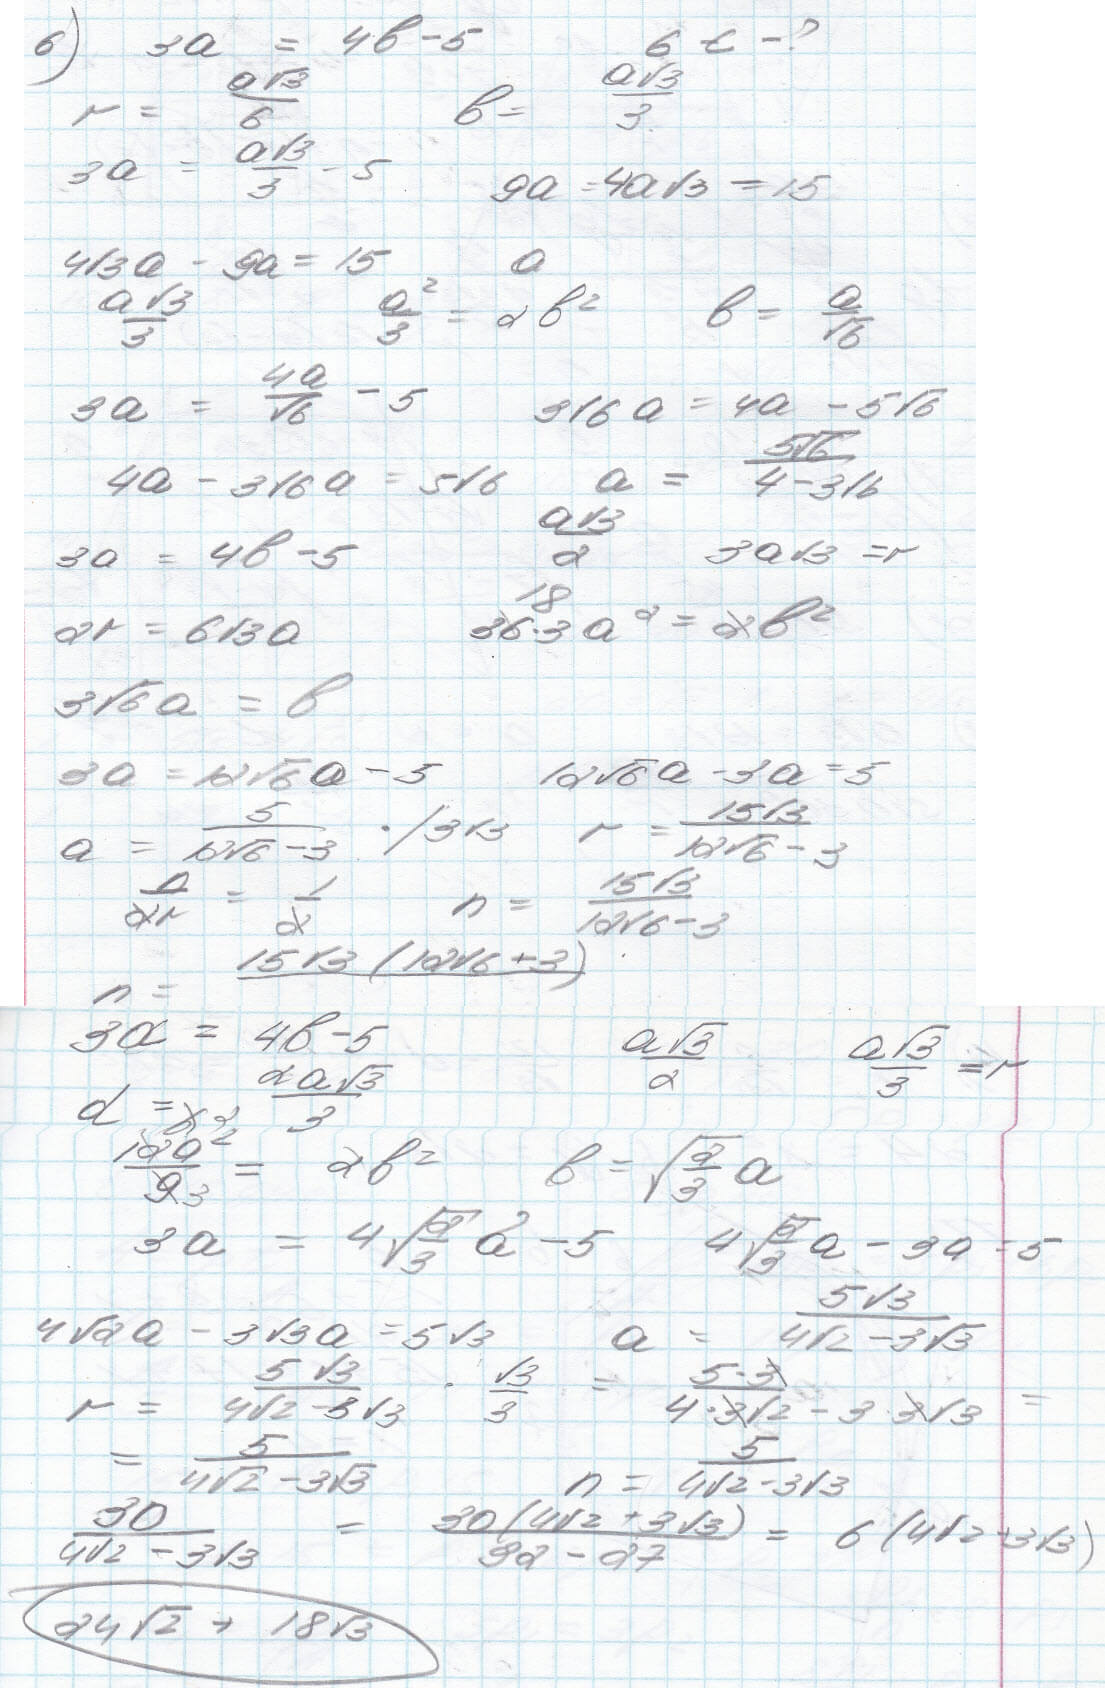 6) 3a = 4b - 5 6-с - ?
r = a√3/6 b = a√3/3
3a = a√3/3 - 5 9a = 4a√3 = 15
4√3a - 9a = 15 a
a√3/3 a²/3 = 2b² b = a/√6
3a = 4a/√6 - 5 3√6a = 4a - 5√6
4a - 3√6a = 5√6 a = 5√6/4 - 3√6
3a = 4b - 5 a√3/2 3a√3 = r
2r = 6√3a 18 36·3a² = 2b²
3√6a = b
3a = 12√6a - 5 12√6a - 3a = 5
a = 5/12√6 - 3 · / 3√3 r = 15√3/12√6 - 3
n/2r = 1/2 n = 15√3/12√6 - 3
n = 15√3(12√6 + 3)
3a = 4b - 5 a√3/2 a√3/3 = r
d = 2a√3/3
12a²/9 3 = 2b² b = √2/3 a
3a = 4√2/3 a - 5 4√2/3 a - 3a = 5
4√2a - 3√3a = 5√3 a = 5√3/4√2 - 3√3
r = 5√3/4√2 - 3√3 · √3/3 = 5·3/4·3√2 - 3·3√3 =
= 5/4√2 - 3√3 n = 5/4√2 - 3√3
30/4√2 - 3√3 = 30(4√2 + 3√3)/32 - 27 = 6(4√2 + 3√3)
24√2 + 18√3